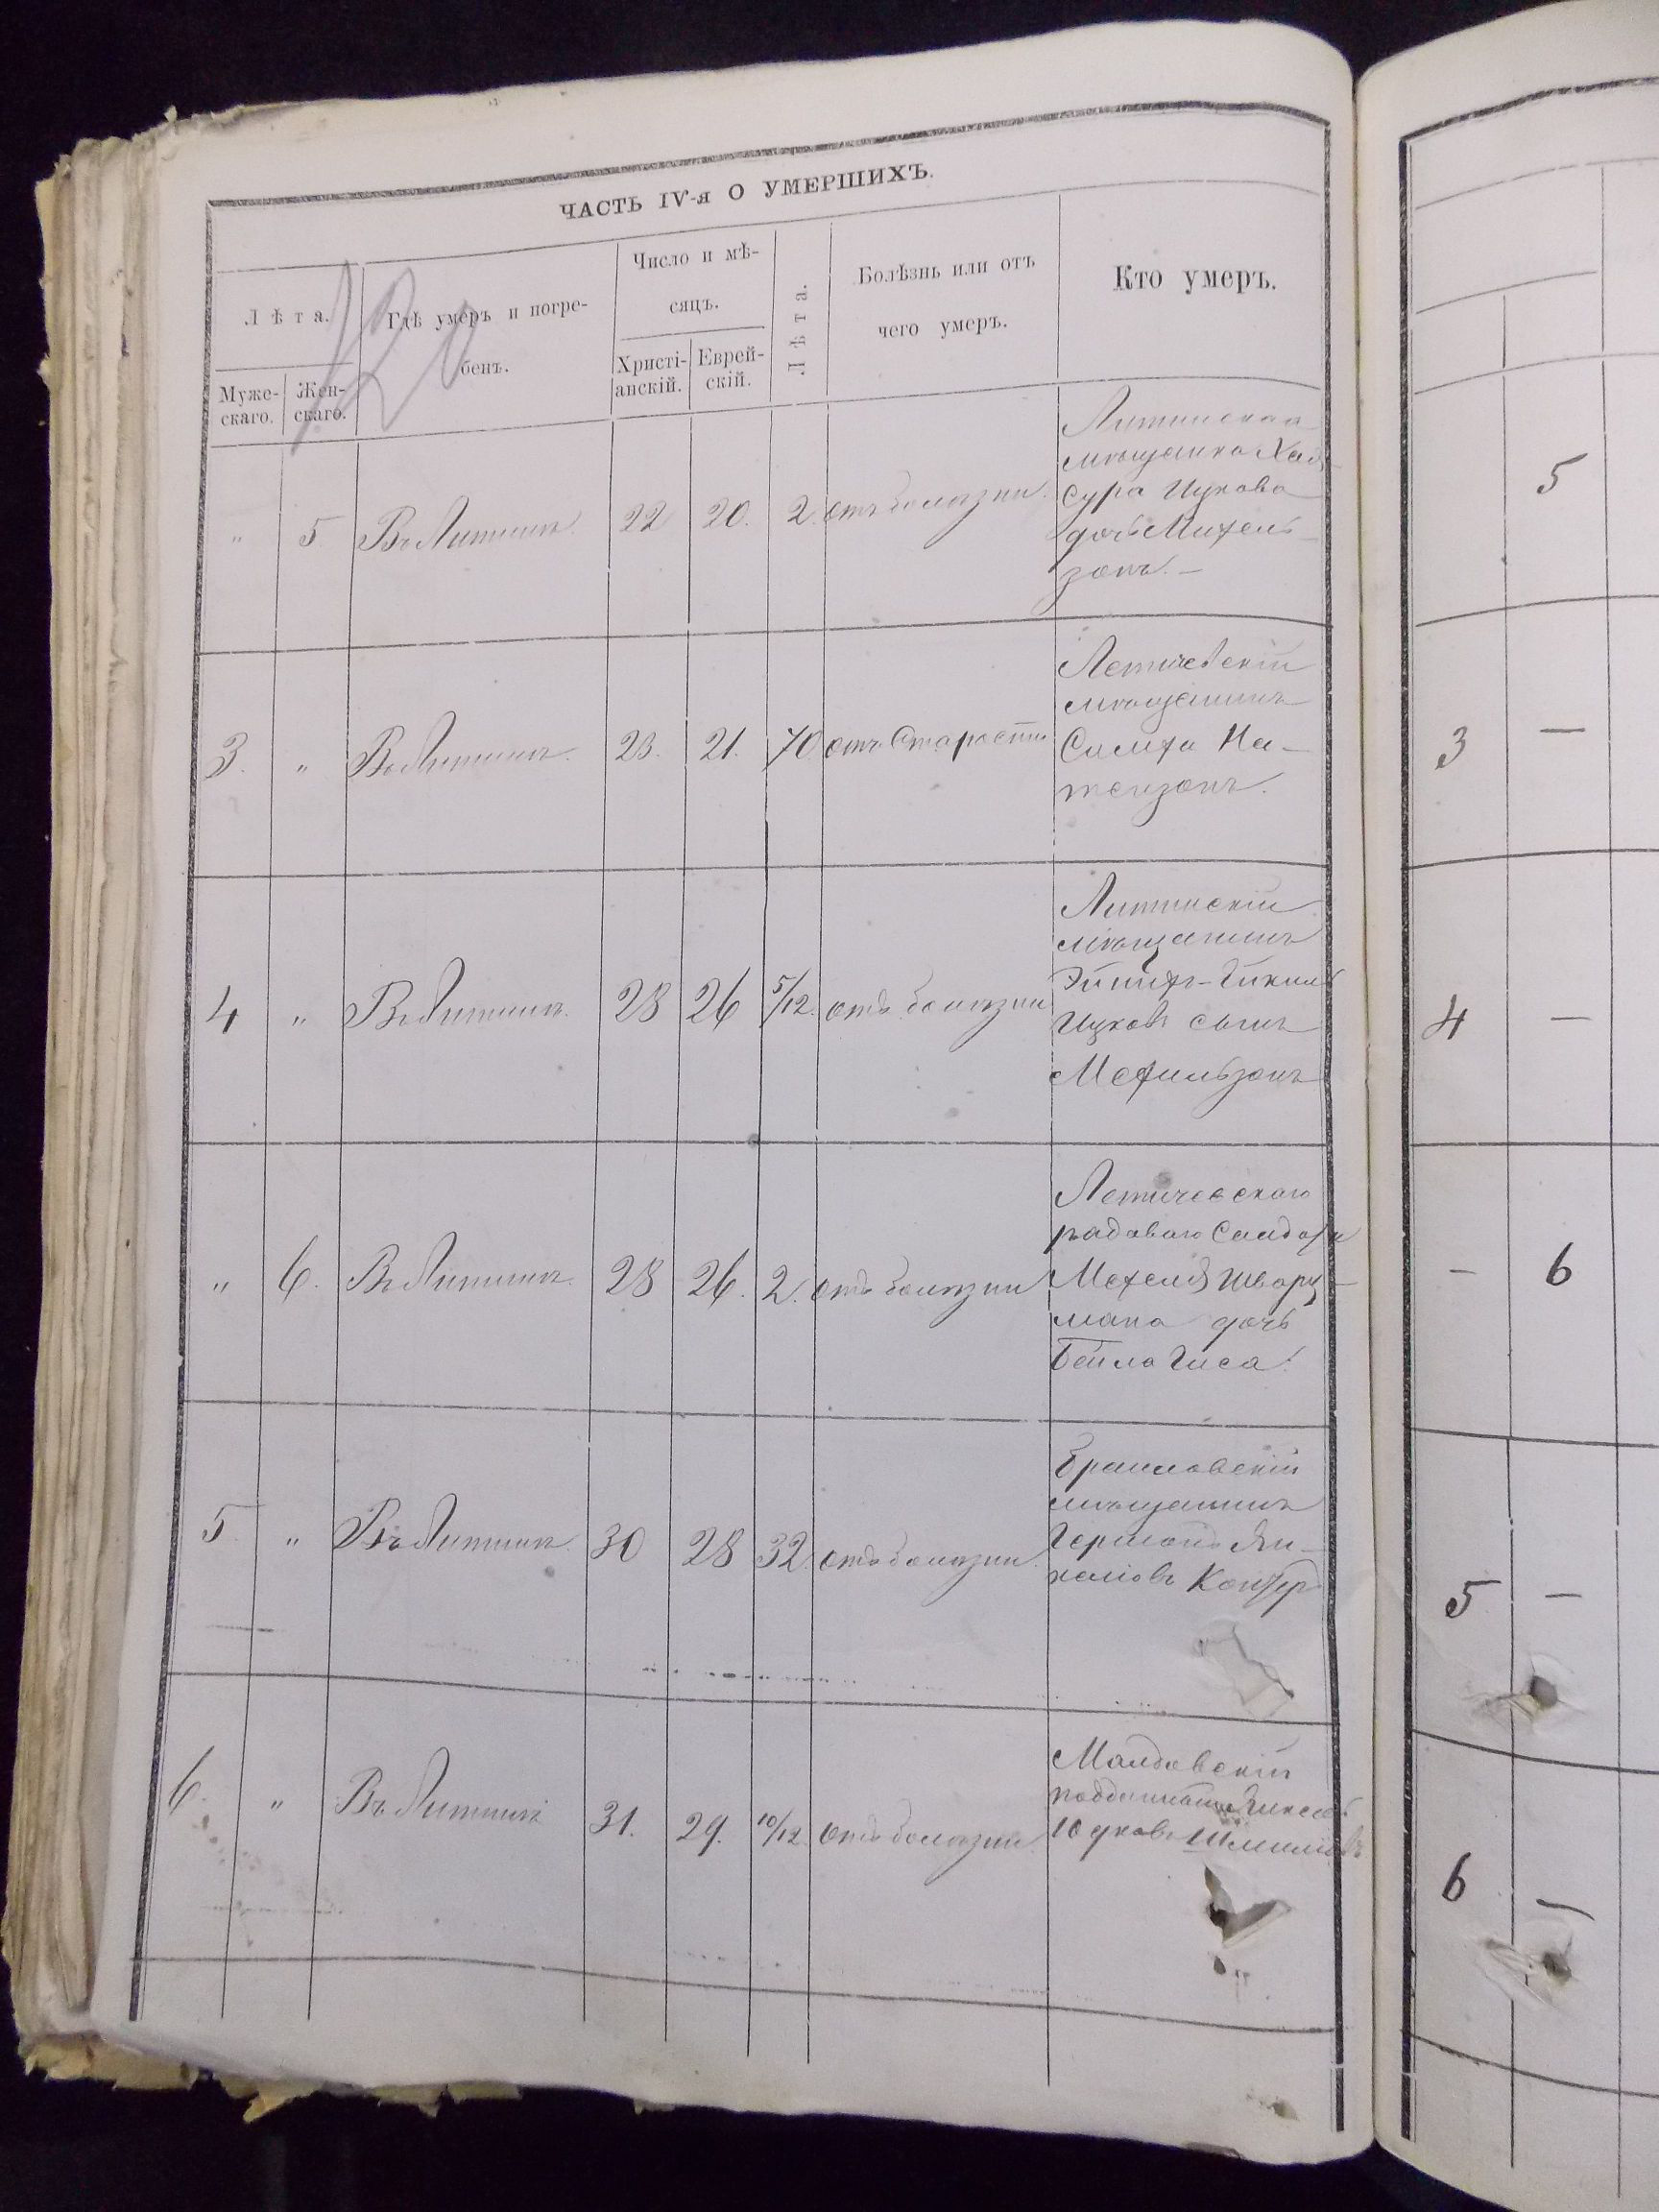 ЧАСТЬ IV-я О УМЕРШИХЪ.
Лѣта.
Муже-
скаго.
Жен-
скаго.
Гдѣ умеръ и погре-
бенъ.
Число и мѣ-
сяцъ.
Христі-
анскій.
Еврей-
скій.
Лѣта.
Болѣзнь или отъ
чего умеръ.
Кто умеръ.
" 5 Въ Литинѣ. 22 20. 2. отъ болѣзни.
Литинская
мѣщанка
Сура Ицкова
дочь Михель-
зонъ. —
3. " Въ Литинѣ. 23. 21. 70 отъ старости
Летичевскій
мѣщанинъ
Симха На-
тензонъ.
4 " Въ Литинѣ. 28 26 5/12. отъ болѣзни
Литинскій
мѣщанинъ
Ицковъ сынъ
Мехильзонъ
" 6. Въ Литинѣ. 28 26. 2. отъ болѣзни
Летичевскаго
рядоваго
Мехеля Шварц-
мана дочь
Бейла
5. " Въ Литинѣ. 30 28 32. отъ болѣзни.
Браиловскій
мѣщанинъ
6. " Въ Литинѣ 31. 29. 10/12. отъ болѣзни.
Молдовскій
5
3 —
4 —
— 6
5 —
6 —